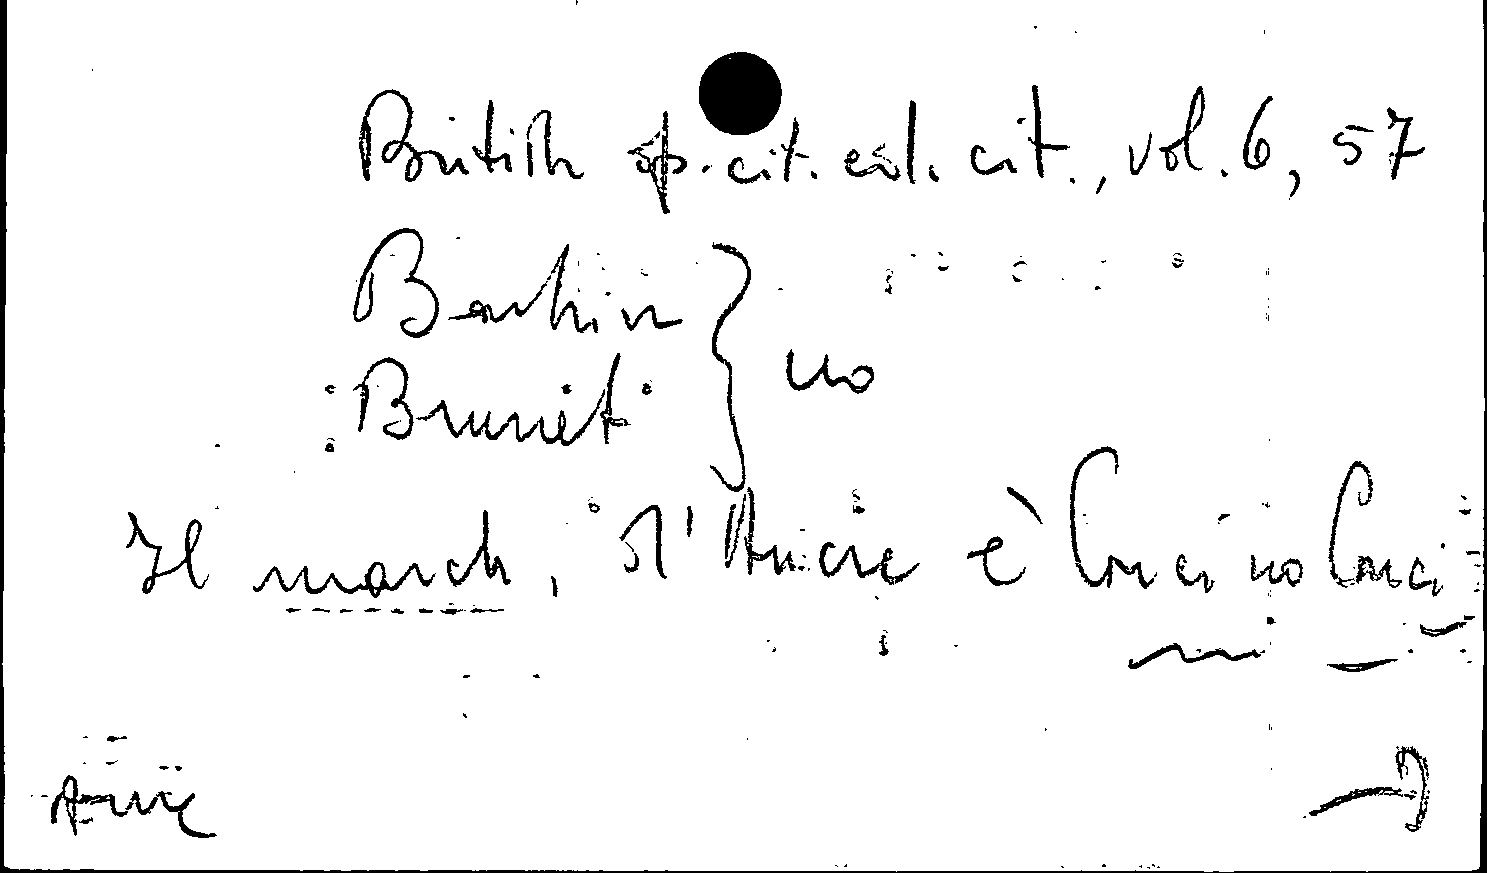 British op. cit. ed. cit., vol. 6, 57
Barbier
Brunet } no
Il march. d'Ancre è Concino Concini